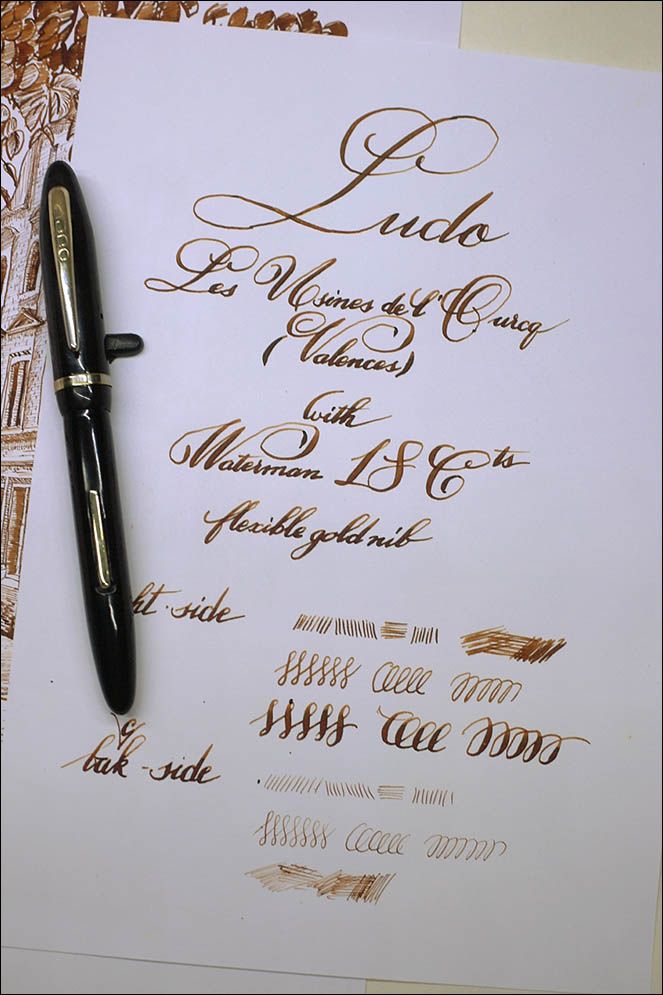 Ludo
Les Usines de l'Ourcq
(Valences)
with
Waterman 18 Cts
flexible gold nib
ht-side
bak-side